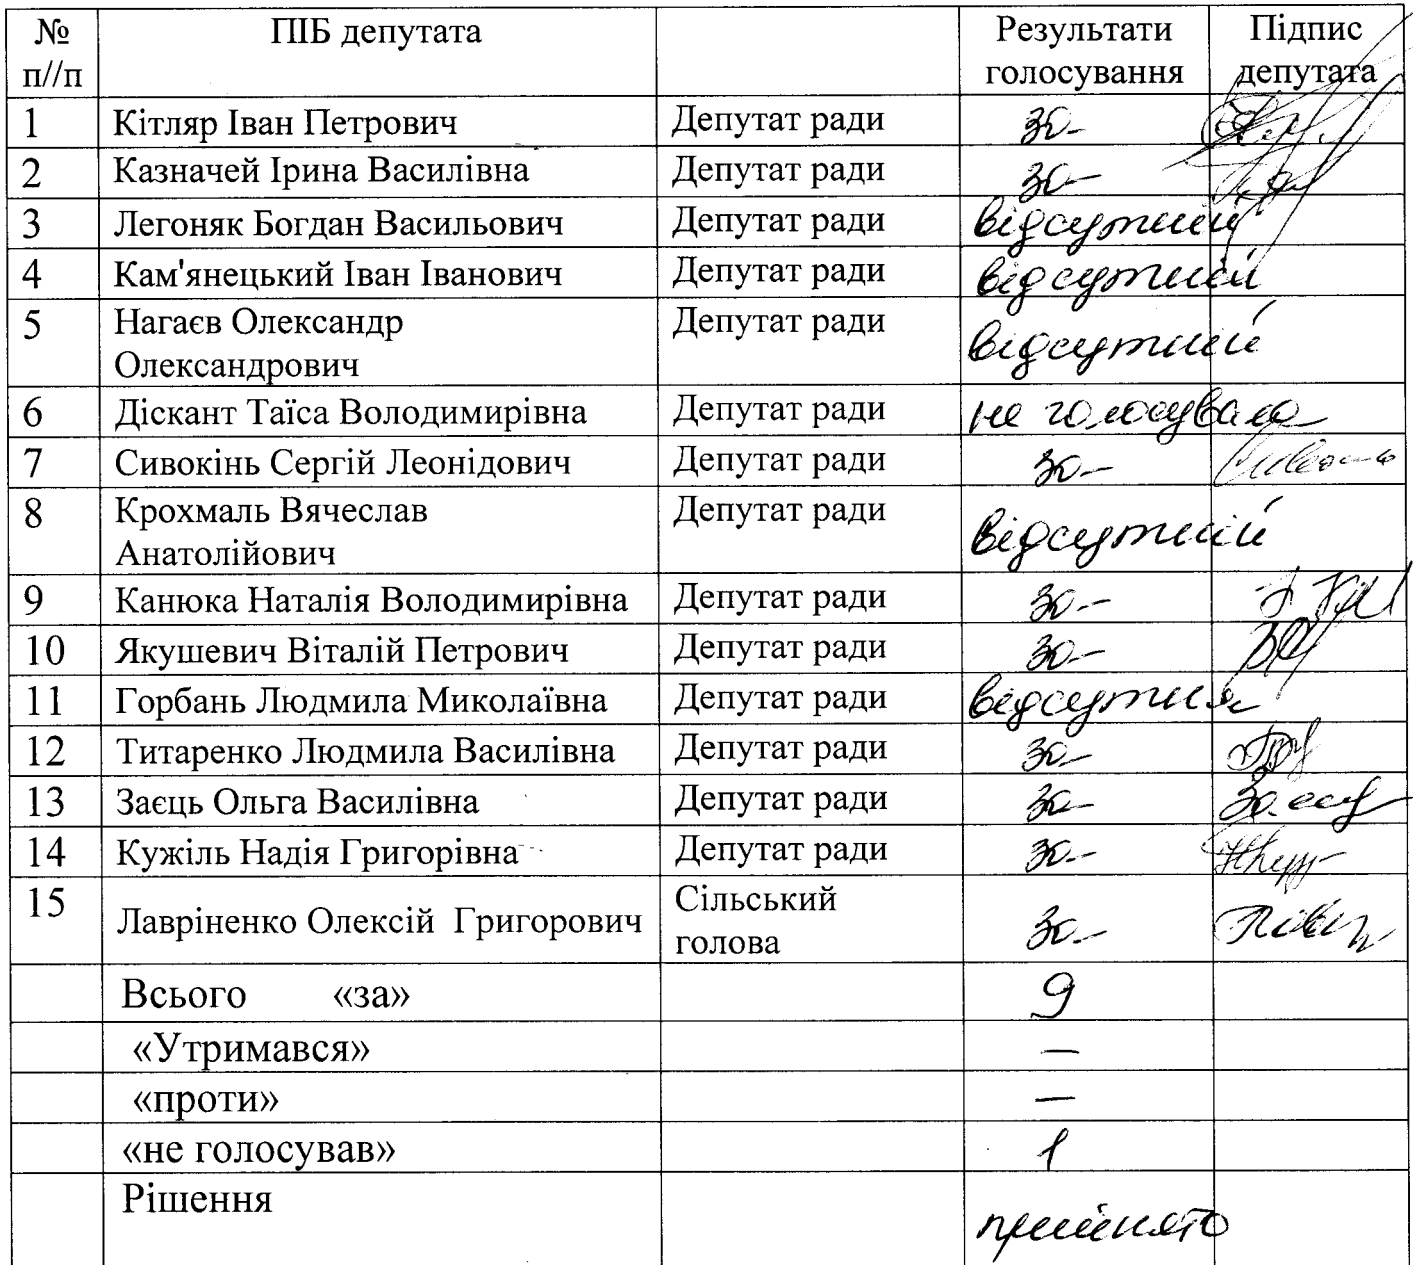 № п//п ПІБ депутата Результати голосування Підпис депутата
1 Кітляр Іван Петрович Депутат ради за
2 Казначей Ірина Василівна Депутат ради за
3 Легоняк Богдан Васильович Депутат ради відсутній
4 Кам'янецький Іван Іванович Депутат ради відсутній
5 Нагаєв Олександр Олександрович Депутат ради відсутній
6 Діскант Таїса Володимирівна Депутат ради не голосувала
7 Сивокінь Сергій Леонідович Депутат ради за
8 Крохмаль Вячеслав Анатолійович Депутат ради відсутній
9 Канюка Наталія Володимирівна Депутат ради за
10 Якушевич Віталій Петрович Депутат ради за
11 Горбань Людмила Миколаївна Депутат ради відсутня
12 Титаренко Людмила Василівна Депутат ради за
13 Заєць Ольга Василівна Депутат ради за
14 Кужіль Надія Григорівна Депутат ради за
15 Лавріненко Олексій Григорович Сільський голова за
Всього «за» 9
«Утримався» —
«проти» —
«не голосував» 1
Рішення прийнято